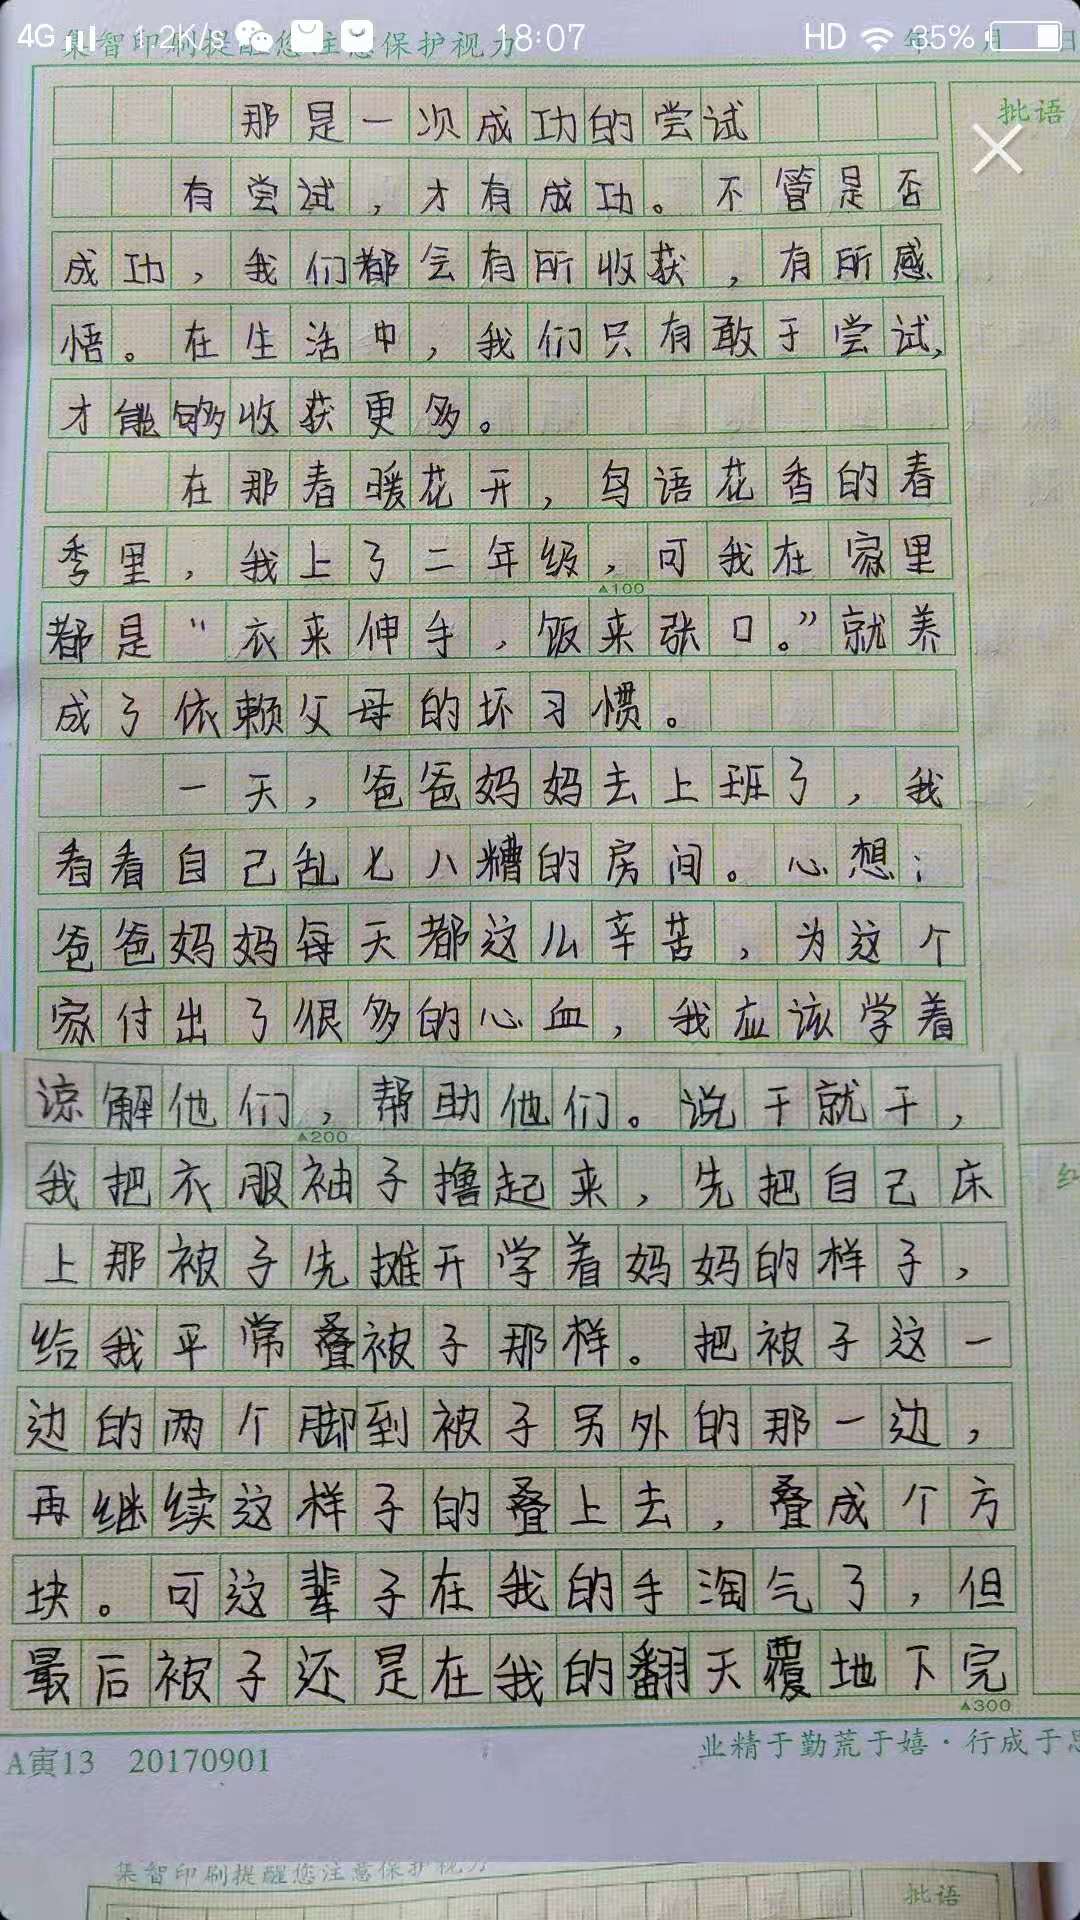 4G 1.2K/s 18:07 HD 85%
集智印刷提醒您注意保护视力 年 月 日
批语
那是一次成功的尝试
有尝试，才有成功。不管是否
成功，我们都会有所收获，有所感
悟。在生活中，我们只有敢于尝试，
才能够收获更多。
在那春暖花开，鸟语花香的春
季里，我上了二年级，可我在家里
▲100
都是“衣来伸手，饭来张口。”就养
成了依赖父母的坏习惯。
一天，爸爸妈妈去上班了，我
看看自己乱七八糟的房间。心想：
爸爸妈妈每天都这么辛苦，为这个
家付出了很多的心血，我应该学着
谅解他们，帮助他们。说干就干，
▲200
我把衣服袖子撸起来，先把自己床
上那被子先摊开学着妈妈的样子，
给我平常叠被子那样。把被子这一
边的两个脚到被子另外的那一边，
再继续这样子的叠上去，叠成个方
块。可这辈子在我的手淘气了，但
最后被子还是在我的翻天覆地下完
▲300
A寅13 20170901
业精于勤荒于嬉·行成于思
集智印刷提醒您注意保护视力
批语